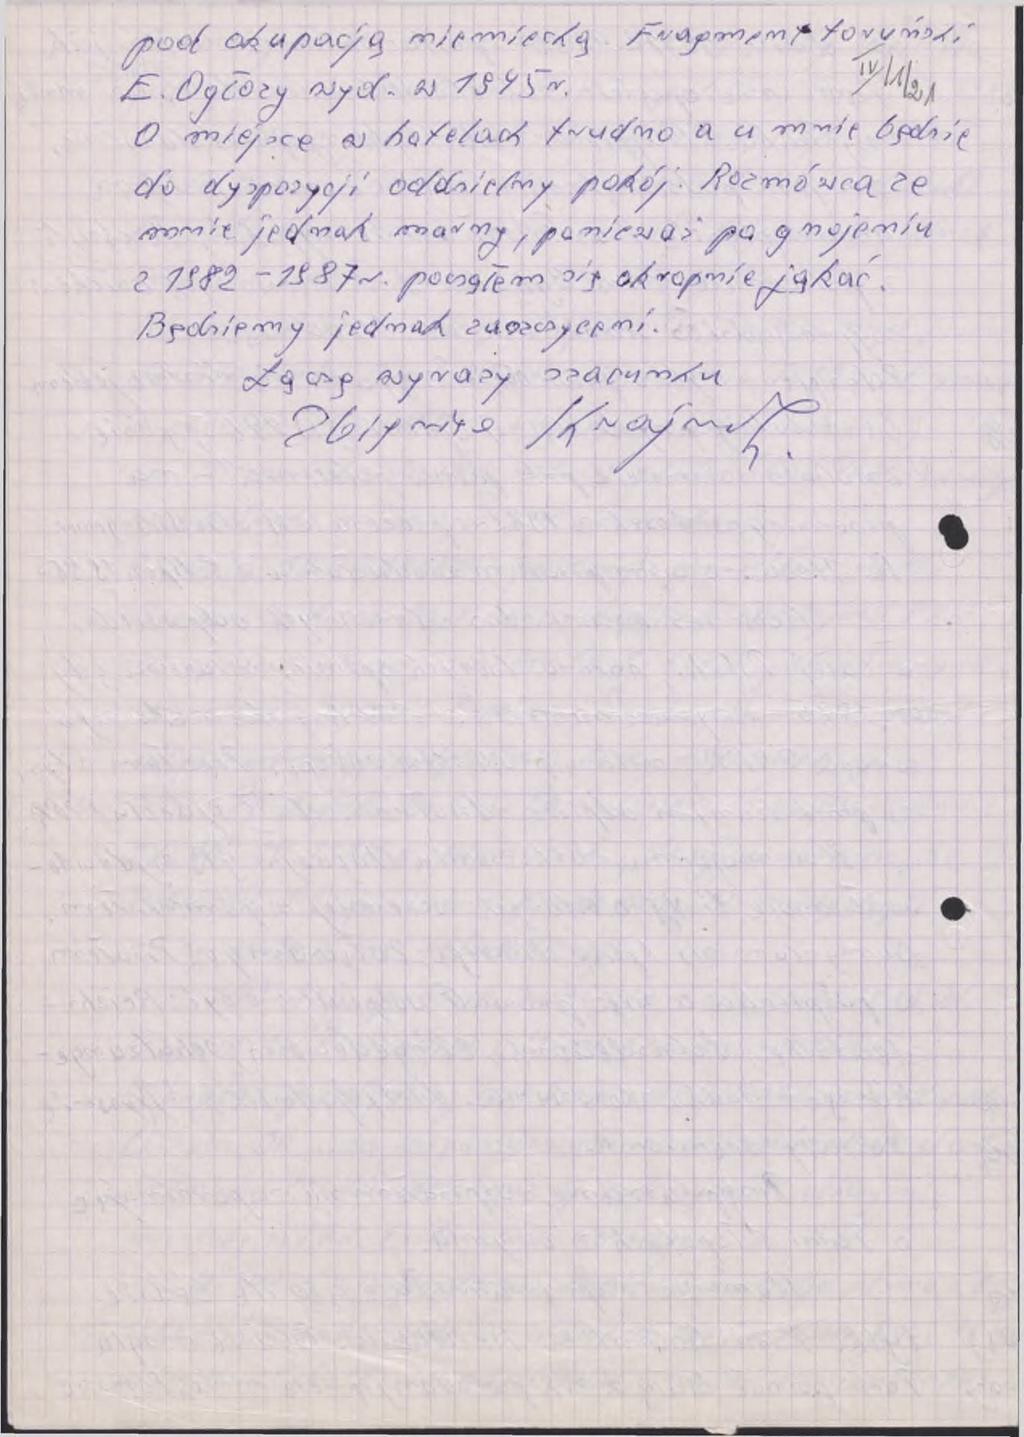 pod okupacją niemiecką. Fragment toruński
IV/1/21
E. Ogłozy wyd. w 1945 r.
O miejsce w hotelach trudno a u mnie będzie
do dyspozycji oddzielny pokój. Rozmówca ze
mnie jednak marny, ponieważ po gnojeniu
z 1982 – 1987 r. począłem się okropnie jąkać.
Będziemy jednak zaszczyceni.
Łączę wyrazy szacunku
Zbigniew